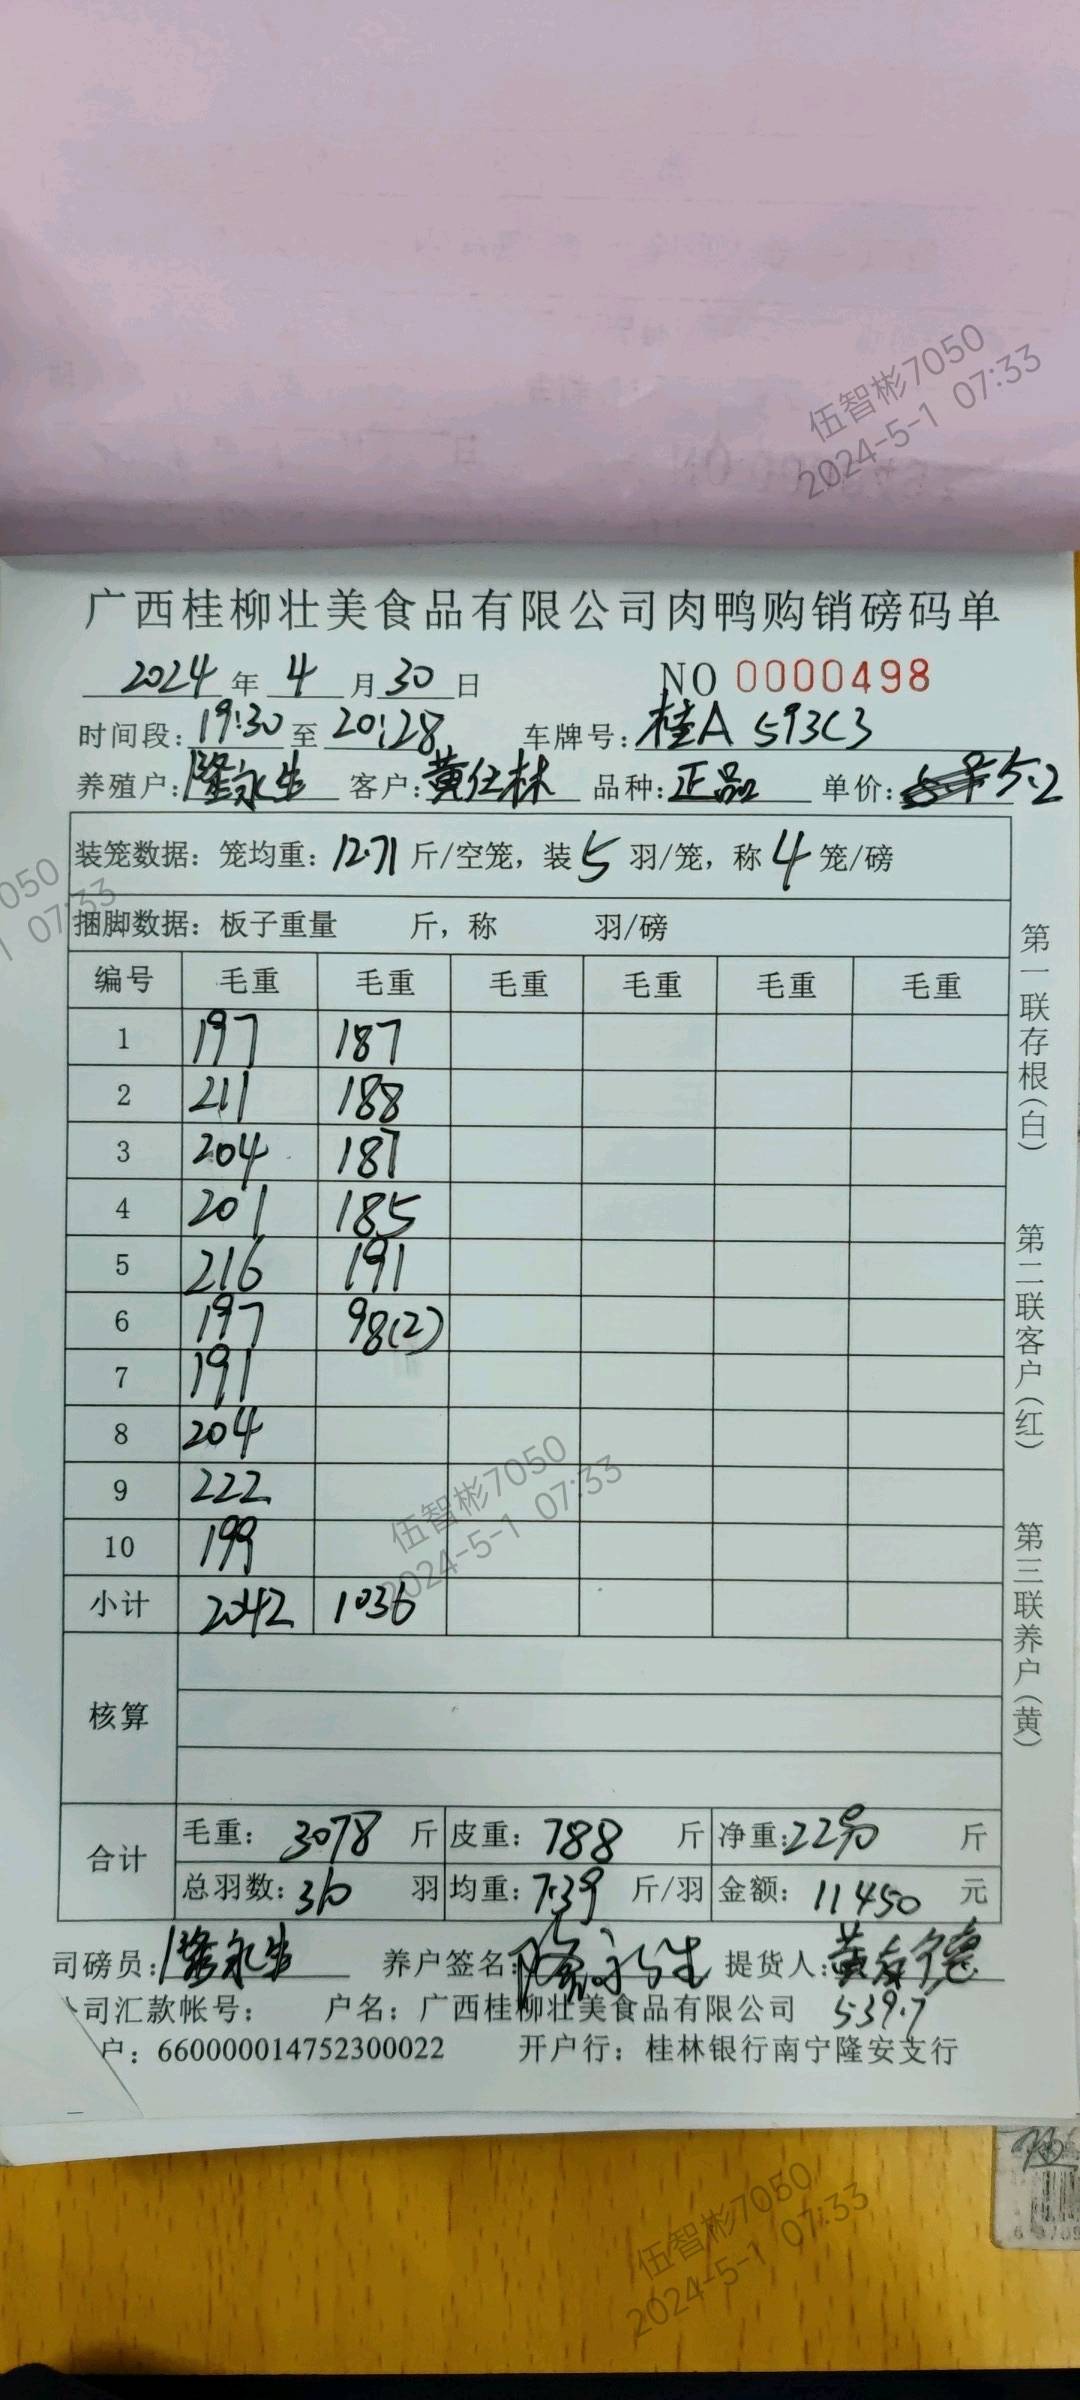 伍智彬7050
2024-5-1 07:33
广西桂柳壮美食品有限公司肉鸭购销磅码单
2024年4月30日 NO 0000498
时间段:19:30至20:28 车牌号:桂A 593C3
养殖户:隆永生 客户:黄任林 品种:正品 单价:5.2
装笼数据:笼均重:12.71斤/空笼,装5羽/笼,称4笼/磅
050
07:33
捆脚数据:板子重量 斤,称 羽/磅
编号 毛重 毛重 毛重 毛重 毛重 毛重
1 197 187
2 211 188
3 204 187
4 201 185
5 216 191
6 197 98(2)
7 191
8 204
9 222
10 199
小计 2042 1036
伍智彬7050
2024-5-1 07:33
核算
合计
毛重:3078斤 皮重:788斤 净重:2290斤
总羽数:310羽 均重:7.39斤/羽 金额:11450元
第一联存根(白) 第二联客户(红) 第三联养户(黄)
司磅员:隆永生 养户签名:隆永生 提货人:黄
公司汇款帐号: 户名:广西桂柳壮美食品有限公司 539.7
户:660000014752300022 开户行:桂林银行南宁隆安支行
伍智彬7050
2024-5-1 07:33